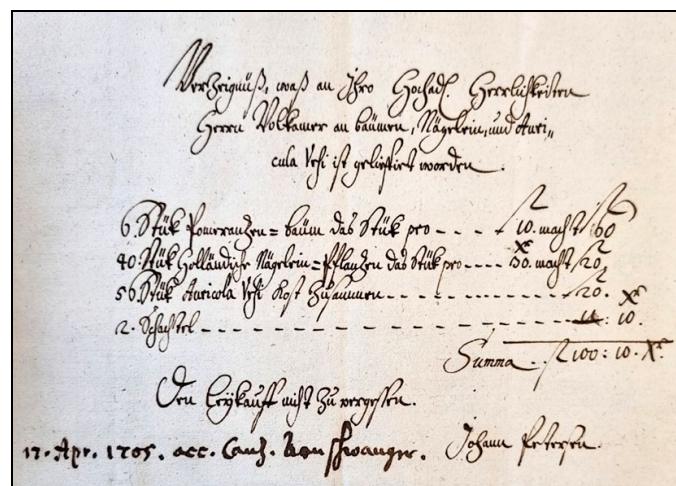 Verzeignüß, waß an Ihro Hochadl. Herrlichkeiten
Herrn Volkamer an bäumen, Nägelein, und Auri-
cula Vrsi ist geliefert worden.
6. Stük Pomeranzen= bäum das Stük pro - - - - fl 10. macht fl 60
40. Stük Holländische Nägelein=Pflanzen das Stük pro - - - - 30. Xr macht fl 20
50 Stük Auricola Vrsi Kost Zusammen - - - - - - - - - fl 20.
2. Schachtel - - - - - - - - - - - - - - - - : 10. Xr
Summa - - fl 100: 10. Xr
Den Leykauff nicht zu vergessen.
Johann Petersen.
17. Apr. 1705. acc.